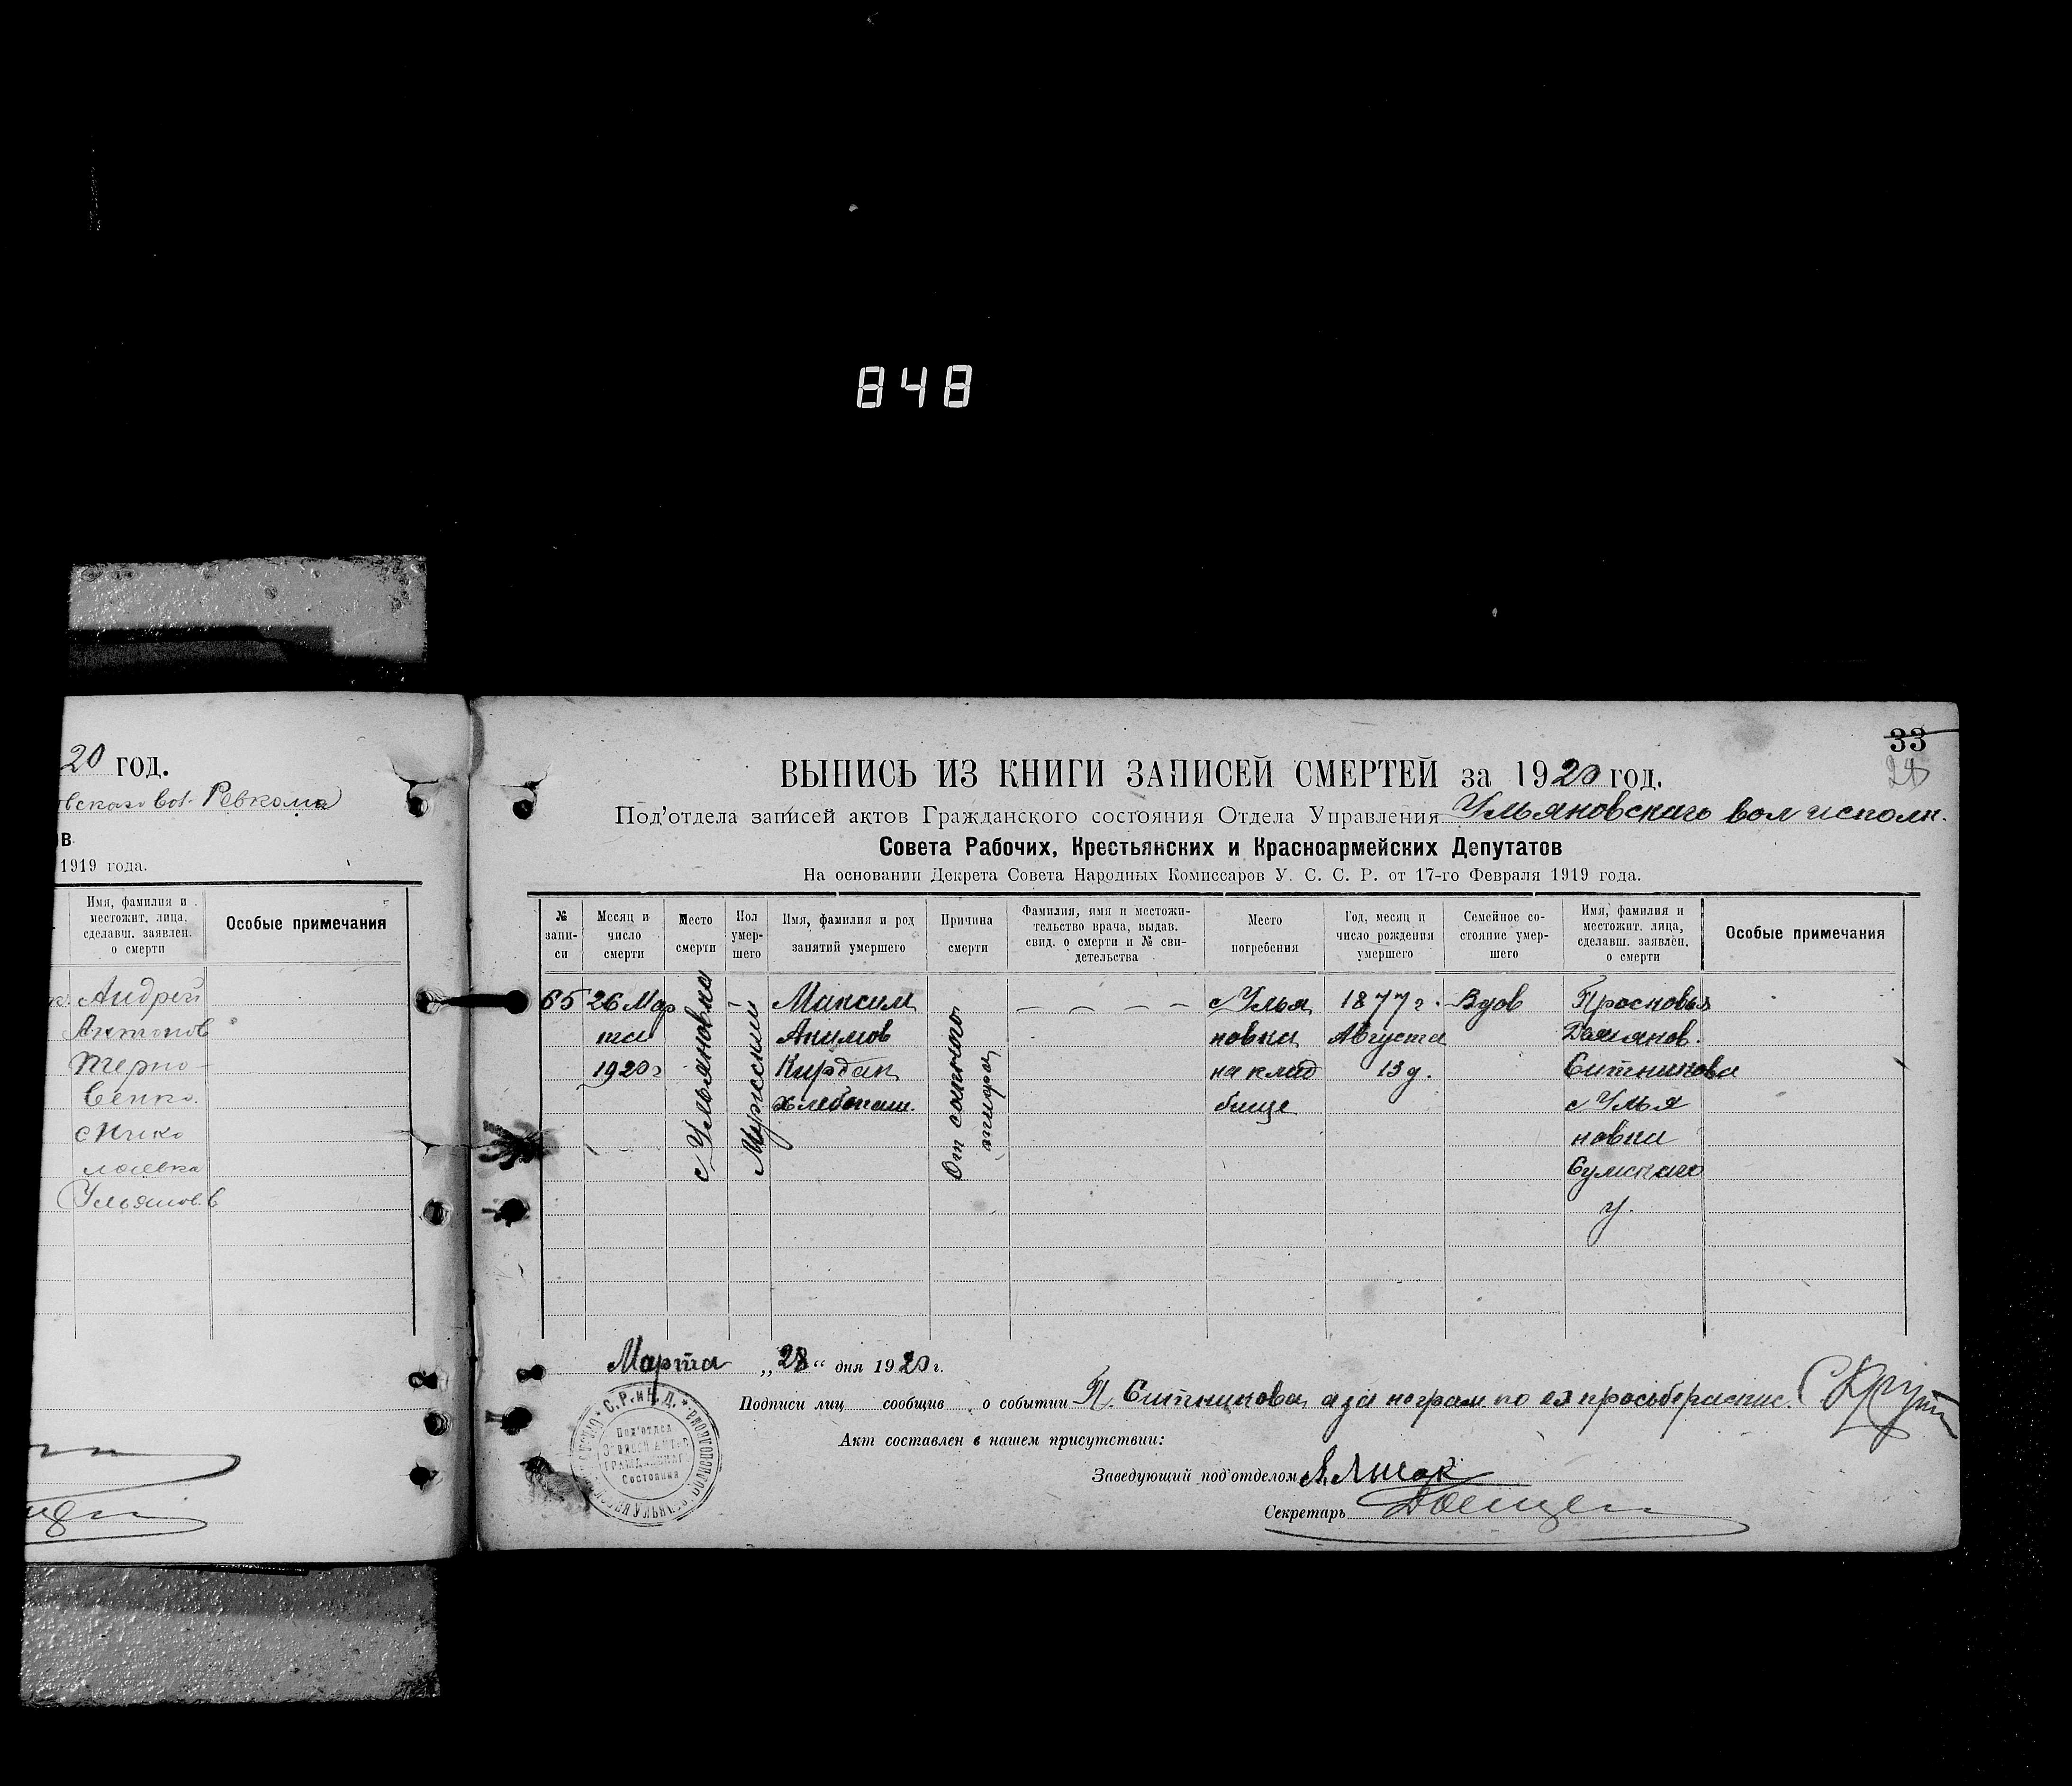 848
20 год.
овскаго вол. Ревкома
в
1919 года.
Имя, фамилия и местожит. лица, сделавш. заявлен. о смерти
Особые примечания
Андрей
Антонов
Терно-
венко.
с Нико
лаевка
Ульянов. в
33
24
ВЫПИСЬ ИЗ КНИГИ ЗАПИСЕЙ СМЕРТЕЙ за 1920 год.
Под'отдела записей актов Гражданского состояния Отдела Управления Ульяновскаго вол исполн.
Совета Рабочих, Крестьянских и Красноармейских Депутатов
На основании Декрета Совета Народных Комиссаров У. С. С. Р. от 17-го Февраля 1919 года.
№ запи-си
Месяц и число смерти
Место смерти
Пол умер-шего
Имя, фамилия и род занятий умершего
Причина смерти
Фамилия, имя и местожи-тельство врача, выдав. свид. о смерти и № сви-детельства
Место погребения
Год, месяц и число рождения умершего
Семейное со-стояние умер-шего
Имя, фамилия и местожит. лица, сделавш. заявлен. о смерти
Особые примечания
65
26 Мар
та
1920 г
с Ульяновка
Мужеский
Максим
Акимов
Кирдан
хлебопаш.
От сыпного
тифа
с Улья
новка
на клад
бище
1877 г.
Августа
13 д.
Вдов
Просковья
Демянов.
Ситникова
с Улья
новки
Сумскаго
у.
Марта „28“ дня 1920 г.
Подписи лиц сообщив о событии П. Ситникова, а за неграм по ея просьбе распис.
Акт составлен в нашем присутствии:
Заведующий под'отделом
Секретарь
С.Р. и К.Д.
Под'отдел
Записей Актов
Гражданского
Состояния